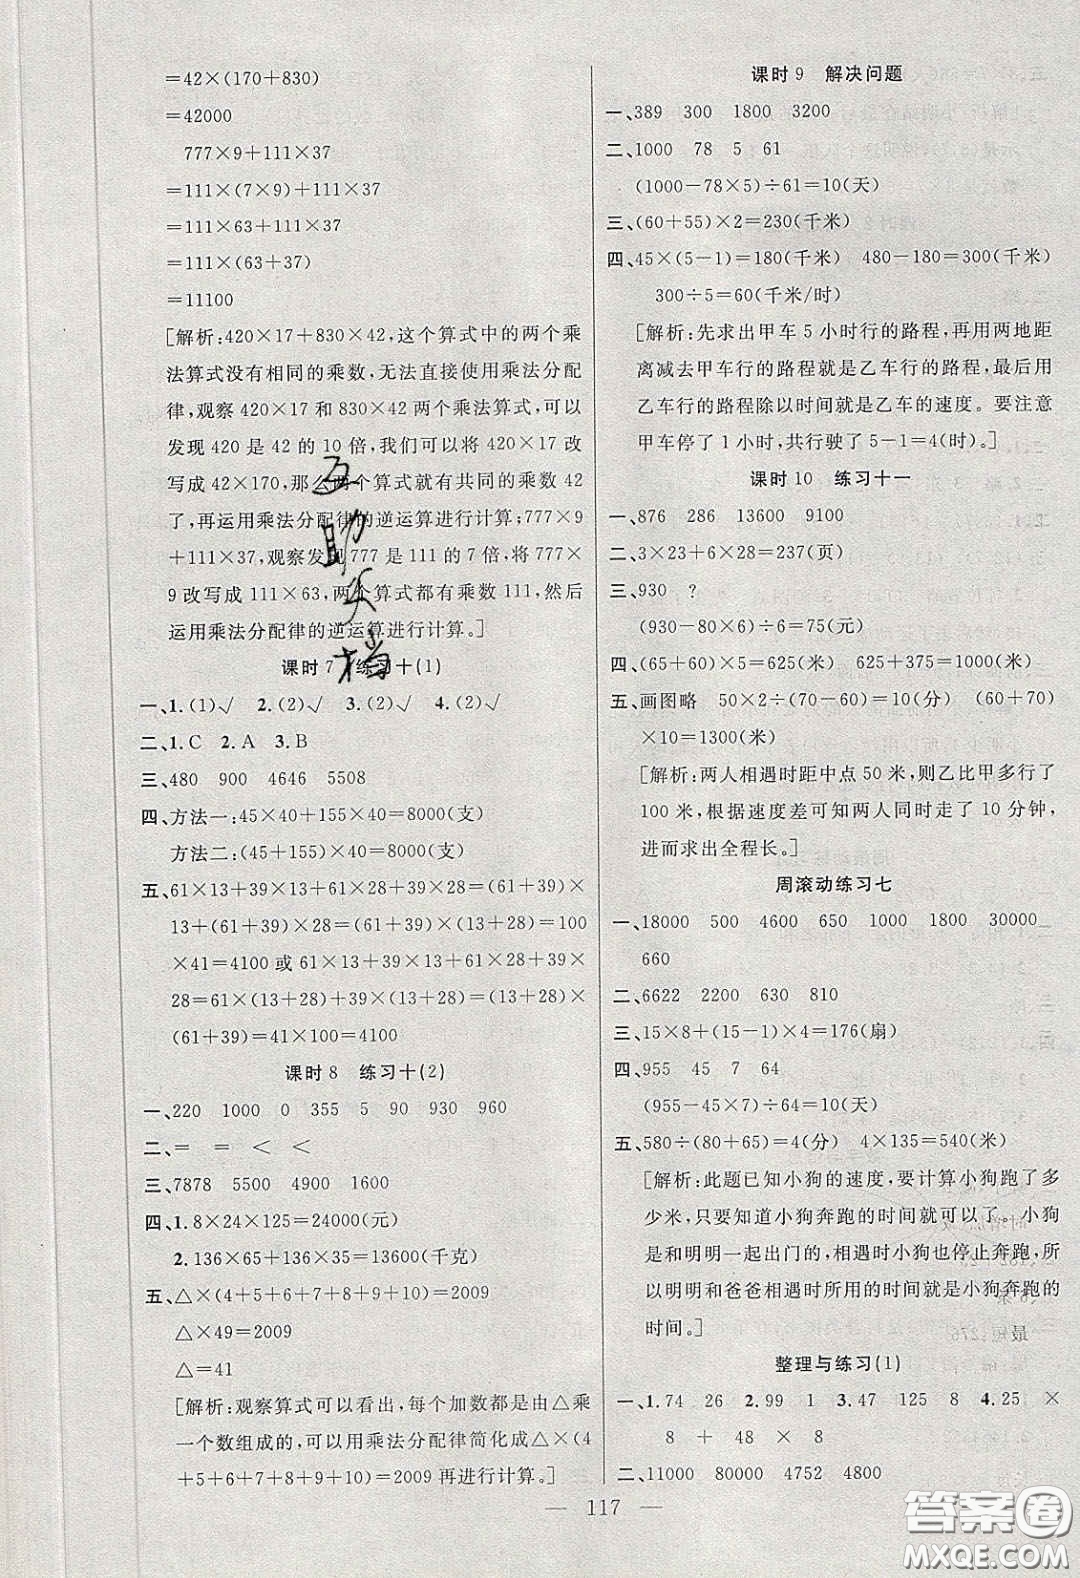 =42×(170+830)
=42000
777×9+111×37
=111×(7×9)+111×37
=111×63+111×37
=111×(63+37)
=11100
[解析:420×17+830×42,这个算式中的两个乘
法算式没有相同的乘数,无法直接使用乘法分配
律,观察420×17和830×42两个乘法算式,可以
发现420是42的10倍,我们可以将420×17改
写成42×170,那么两个算式就有共同的乘数42
了,再运用乘法分配律的逆运算进行计算;777×9
+111×37,观察发现777是111的7倍,将777×
9改写成111×63,两个算式都有乘数111,然后
运用乘法分配律的逆运算进行计算。]
课时7 练习十(1)
一、1.(1)√ 2.(2)√ 3.(2)√ 4.(2)√
二、1.C 2.A 3.B
三、480 900 4646 5508
四、方法一:45×40+155×40=8000(支)
方法二:(45+155)×40=8000(支)
五、61×13+39×13+61×28+39×28=(61+39)×
13+(61+39)×28=(61+39)×(13+28)=100
×41=4100或61×13+39×13+61×28+39×
28=61×(13+28)+39×(13+28)=(13+28)×
(61+39)=41×100=4100
课时8 练习十(2)
一、220 1000 0 355 5 90 930 960
二、= = < <
三、7878 5500 4900 1600
四、1.8×24×125=24000(元)
2.136×65+136×35=13600(千克)
五、△×(4+5+6+7+8+9+10)=2009
△×49=2009
△=41
[解析:观察算式可以看出,每个加数都是由△乘
一个数组成的,可以用乘法分配律简化成△×(4
+5+6+7+8+9+10)=2009再进行计算。]
课时9 解决问题
一、389 300 1800 3200
二、1000 78 5 61
(1000-78×5)÷61=10(天)
三、(60+55)×2=230(千米)
四、45×(5-1)=180(千米) 480-180=300(千米)
300÷5=60(千米/时)
[解析:先求出甲车5小时行的路程,再用两地距
离减去甲车行的路程就是乙车行的路程,最后用
乙车行的路程除以时间就是乙车的速度。要注意
甲车停了1小时,共行驶了5-1=4(时)。]
课时10 练习十一
一、876 286 13600 9100
二、3×23+6×28=237(页)
三、930 ?
(930-80×5)÷(5+5)=75(元)
四、(65+60)×5=625(米) 625+375=1000(米)
五、画图略 50×2÷(70-60)=10(分) (60+70)
×10=1300(米)
[解析:两人相遇时距中点50米,则乙比甲多行了
100米,根据速度差可知两人同时走了10分钟,
进而求出全程长。]
周滚动练习七
一、18000 500 4600 650 1000 1800 30000
660
二、6622 2200 630 810
三、15×8+(15-1)×4=176(扇)
四、955 45 7 64
(955-45×7)÷64=10(天)
五、580÷(80+65)=4(分) 4×135=540(米)
[解析:此题已知小狗的速度,要计算小狗跑了多
少米,只要知道小狗奔跑的时间就可以了。小狗
是和明明一起出门的,相遇时小狗也停止奔跑,所
以明明和爸爸相遇时所用的时间就是小狗奔跑的
时间。]
整理与练习(1)
一、1.74 26 2.99 1 3.47 125 8 4.25 ×
8 + 48 × 8
二、11000 80000 4752 4800
互
助
文
档
117
答案圈
MXQE.COM